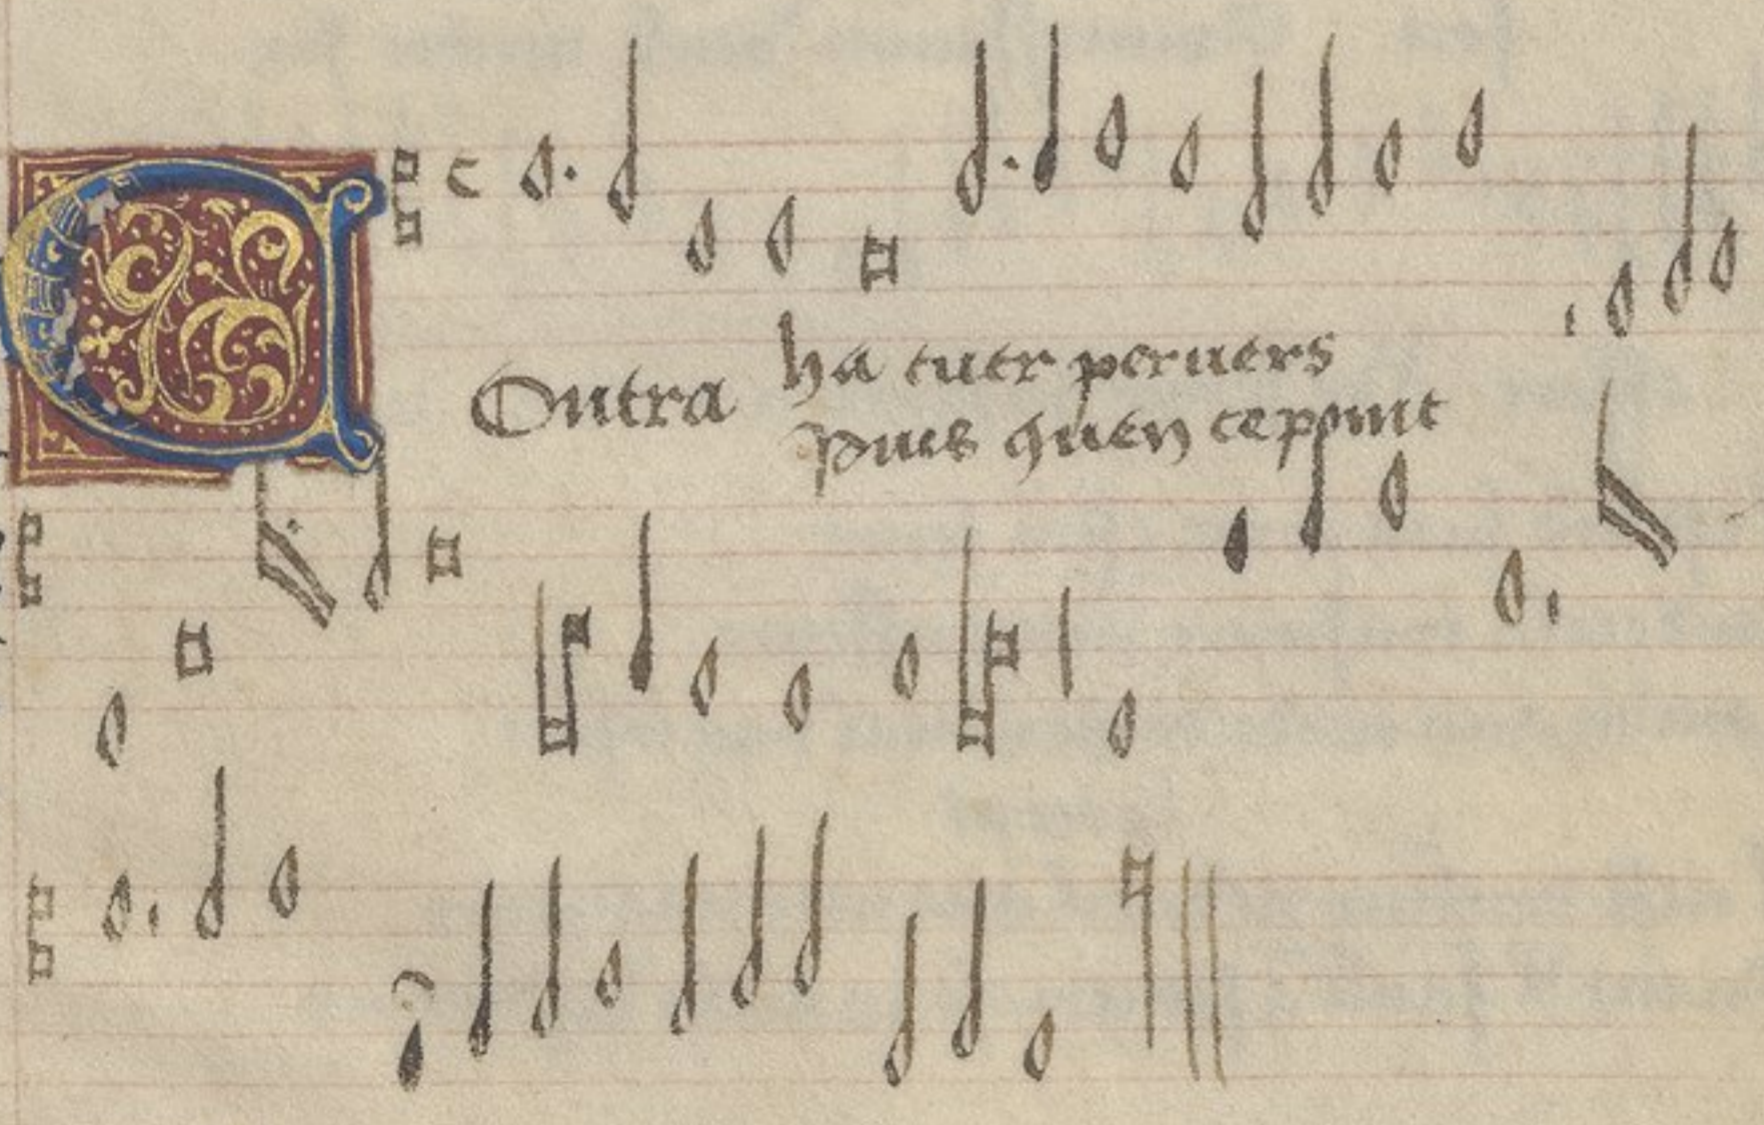 Contra ha cuer peruers
Puis quen ce point